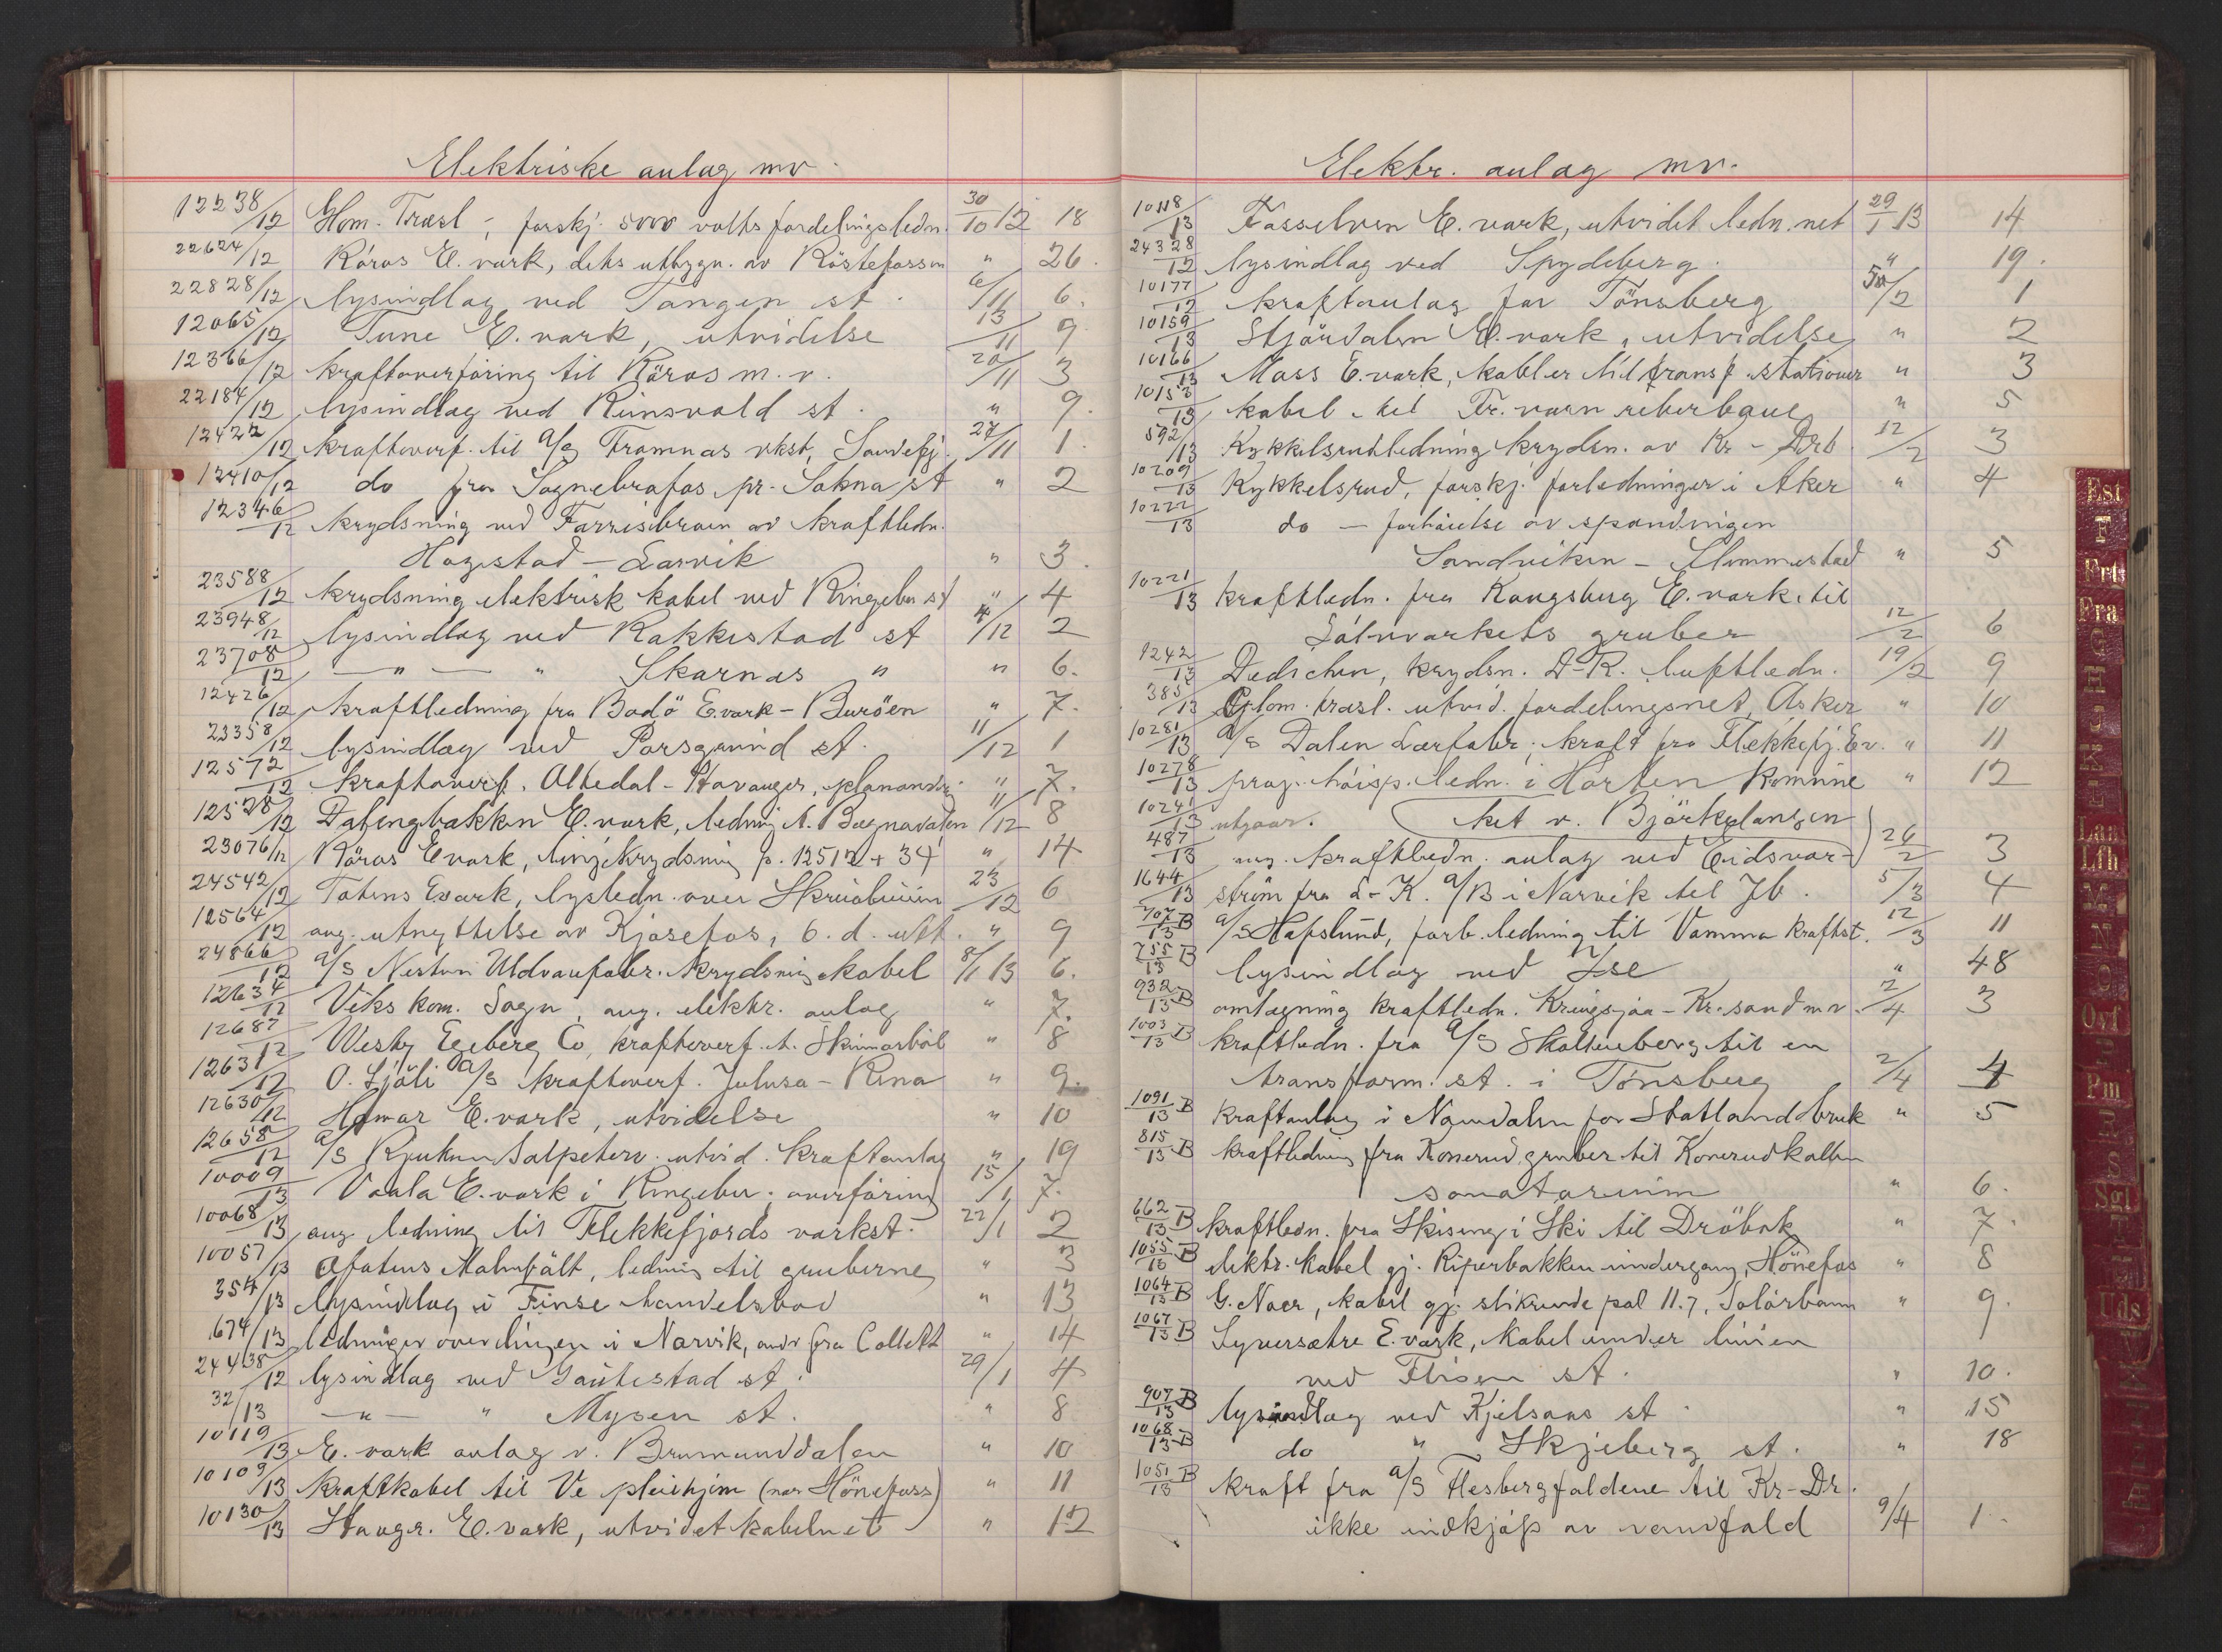 Elektriske anlæg mv.
12238/12 Glom. Træsl; forskj. 5000 volts fordelingsledn. 30/10 12 18
22624/12 Röros E. værk, dets utbygn. av Röstefossen " 26.
22828/12 lysindlæg ved Tangen st. 6/11 6.
12065/12 Tune E. værk, utvidelse 13/11 9.
12366/12 kraftoverföring til Röros m. v. 20/11 3
22184/12 lysindlæg ved Rinsvold st. " 9.
12422/12 kraftoverf. til A/S Framnæs vkst, Sandefj. 27/11 1.
12410/12 do fra Sagnebrafos pr. Sokna st " 2
12346/12 krydsning ved Farrisbroen av kraftledn.
Hogstad - Larvik " 3.
23588/12 krydsning elektrisk kabel ved Ringebu st " 4
23948/12 lysindlæg ved Rakkestad st 4/12 2
23708/12 — " — " Skarnæs " " 6.
12426/12 kraftledning fra Bodö E.værk - Buröen " 7.
23358/12 lysindlæg ved Porsgrund st. 11/12 1
12572/12 kraftoverf. Oltedal - Stavanger, planændr. " 7.
12528/12 Dalengbakken E. værk, ledning t. Bægnadalen 11/12 8
23076/12 Röros E værk, linjekrydsning p. 12512 + 34 " 14
24542/12 Totens Eværk, lysledn. over Skreiabanen 23/12 6
12564/12 ang. utnyttelse av Kjosefos, 6. d. utf. " 9
24866/12 A/S Nestun Uldvarefabr. krydsning kabel 8/1 13 6.
12634/12 Viks kom. Sogn, ang. elektr. anlæg " 7.
12687/12 Westy Egeberg Co, kraftoverf. t. Skinnarböl " 8
12631/12 O. Sjöli A/S kraftoverf. Julusa - Rena " 9.
12630/12 Hamar E. værk, utvidelse " 10
12658/12 A/S Rjukan Salpeterv. utvid. kraftanlæg " 19
10009/13 Vaala E. værk i Ringebu; overföring 15/1 7.
10068/13 ang ledning til Flekkefjords værkst. 22/1 2
10057/13 Ofotens Malmfält, ledning til gruberne " 3
354/13 lysindlæg i Finse handelsbod " 13
674/13 ledninger over linjen i Narvik, andr fra Collett " 14
24438/12 lysindlæg ved Gautestad st. 29/1 4
32/13 — " — " Mysen st. " 8
10119/13 E. værk anlæg v. Brumunddalen " 10
10109/13 kraftkabel til Ve pleiehjem (nær Hönefoss) " 11
10130/13 Stavgr. E. værk, utvidet kabelnet " 12
Elektr. anlæg mv.
10118/13 Fosselven E. værk, utvidet ledn. net 29/1 13 14
24328/12 lysindlæg ved Spydeberg. " 19.
10177/12 kraftanlæg for Tönsberg 5/2 1
10159/13 Stjördalen E. værk, utvidelse " 2
10166/13 Moss E. værk, kabler til transf. stationer " 3
10153/13 kabel til Fr. værn reberbane " 5
592/13 Kykkelsrudledning krydsn. av Kr - Drb. 12/2 3
10209/13 Kykkelsrud, forskj. forledninger i Aker " 4
10222/13 do — forhöielse av spændingen
Sandviken - Slemmestad " 5
10221/13 kraftledn. fra Kongsberg E. værk til
Sölvværkets gruber 12/2 6
1242/13 Dedichen, krydsn. D-R. luftledn. 19/2 9
385/13 Glom. træsl. utvid. fordelingsnet, Asker " 10
10281/13 A/S Dalen Lærfabr; kraft fra Flekkefj. Ev. " 11
10278/13 proj. höisp. ledn. i Horten Komune " 12
10241/13 utgaar. ket v. Björkelangen
487/13 ang. kraftledn. anlæg ved Eidsvar- 26/2 3
1644/13 ström fra L-K. A/B i Narvik til Jb. 5/3 4
707/13 B A/S Hafslund, forb. ledning til Vamma kraftst. 12/3 11
755/13 B lysindlæg ved Ise " 48
932/13 B omlægning kraftledn. Kringsjaa - Kr.sand m v. 2/4 3
1003/13 B kraftledn. fra A/S Skollenborg til en
transform. st. i Tönsberg 2/4 4
1091/13 B kraftanlæg i Namdalen for Statland bruk " 5
815/13 B kraftledning fra Konnerud gruber til Konerudkollen
sanatorium " 6.
662/13 B kraftledn. fra Skiseng i Ski til Dröbak " 7.
1055/13 B elektr. kabel gj. Riperbakken undergang, Hönefos " 8
1064/13 B G. Naer, kabel gj. stikrende pæl 11.7, Solörbanen " 9.
1067/13 B Syversætre E. værk, kabel under linien
ved Flisen st. " 10.
907/13 B lysindlæg ved Kjelsaas st. " 15
1068/13 B do " Skjeberg st. " 18
1051/13 B kraft fra A/S Flesbergfaldene til Kr-Dr.
ikke indkjöp av vandfald 9/4 1.
Est
F
Frt
Fra
G
H
J
K
L
Laa
Lfh
M
N
O
Ovf
P
Pm
R
S
Sgl
T
U
Uds